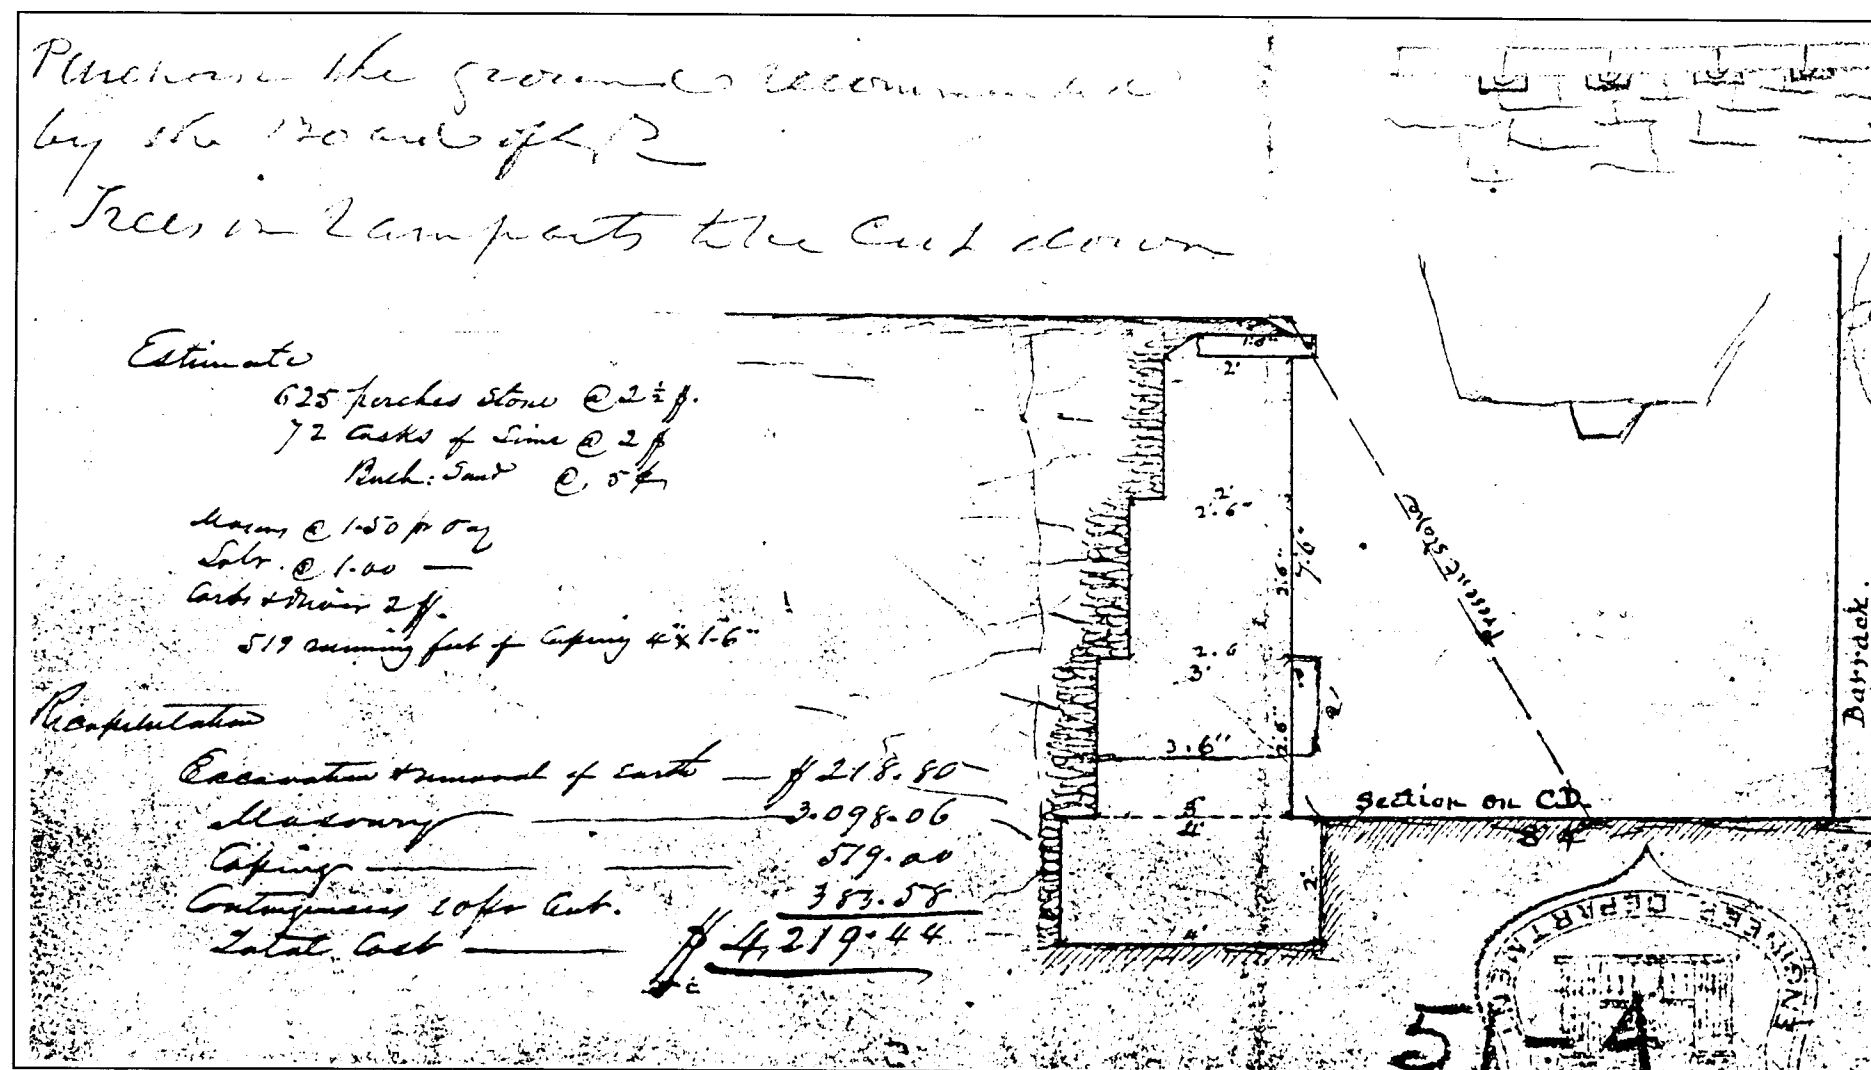 Purchase the ground recommended
by the Board of
Trees on Ramparts to be Cut down
Estimate
625 perches Stone @ 2½ $.
72 Casks of Lime @ 2 $
Bush: Sand @ 5 ¢
Masons @ 1.50 pr Day
Labr. @ 1.00 —
Carts & Driver 2 $.
519 running feet of Coping 4" x 1-6"
Recapitulation
Excavation & removal of earth — $ 218.80
Masonry — 3.098.06
Coping — 519.00
Contingencies 10 pr Cent. 383.58
Total Cost — $ 4,219.44
1.6"
2'
2'
2.6"
7.6"
2.6"
2.6
3'
2'
2.6"
3.6"
4'
2'
4'
Present Slope
Section on CD.
Barrack.
ENGINEER DEPARTMENT
5 - 4